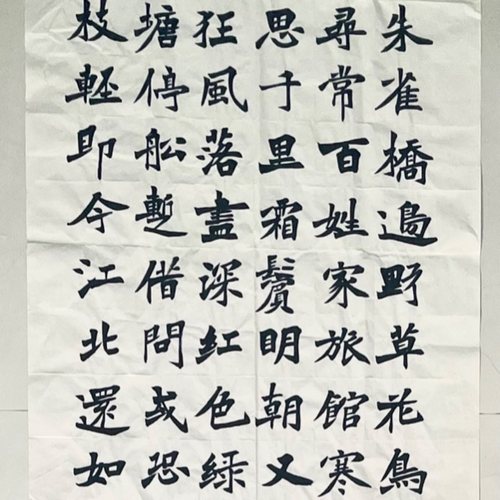 朱雀橋邊野草花鳥
尋常百姓家旅館寒
思千里霜鬢明朝又
狂風落盡深紅色綠
塘停船暫借問或恐
枝輕即今江北還如